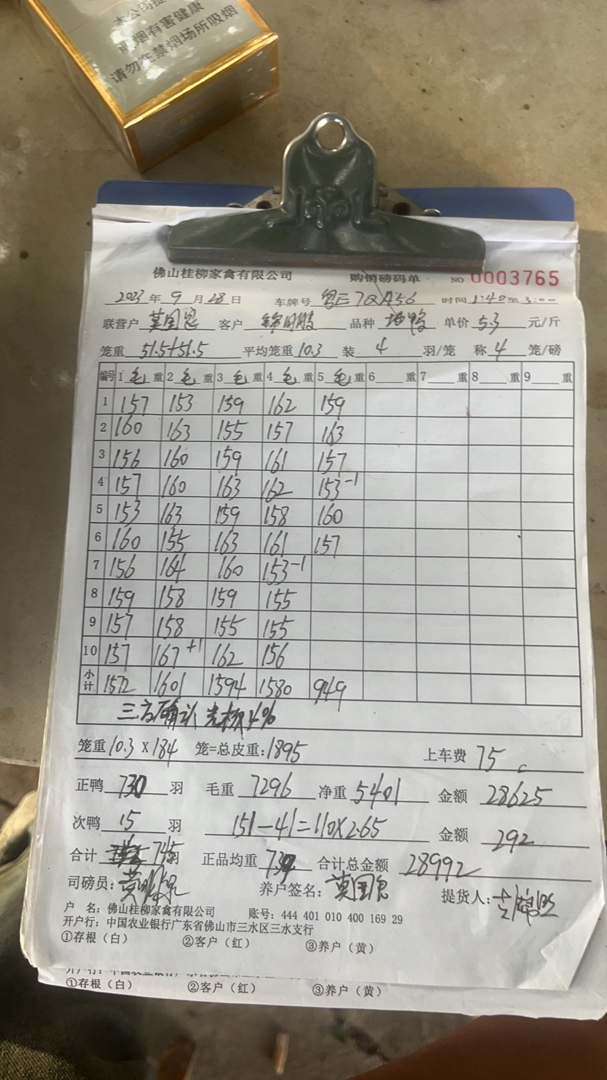 本公司提
吸烟有害健康
请勿在禁烟场所吸烟
佛山桂柳家禽有限公司 购销磅码单 NO 0003765
2023年9月28日 车牌号 粤E7QA56 时间 1:40至3:00
联营户 莫国恩 客户 品种 单价 5.3 元/斤
笼重 51.5+51.5 平均笼重 10.3 装 4 羽/笼 称 4 笼/磅
编号 1 毛 重 2 毛 重 3 毛 重 4 毛 重 5 毛 重 6 重 7 重 8 重 9 重
1 157 153 159 162 159
2 160 163 155 157 163
3 156 160 159 161 157
4 157 160 163 162 153-1
5 153 163 159 158 160
6 160 155 163 161 157
7 156 164 160 153-1
8 159 158 159 155
9 157 158 155 155
10 157 167+1 162 156
小计 1572 1601 1594 1580 949
三方确认 4%
笼重 10.3×184 笼=总皮重:1895 上车费 75
正鸭 730 羽 毛重 7296 净重 5401 金额 28625
次鸭 15 羽 151-41=110×2.65 金额 292
合计 745 羽 正品均重 7.39 合计总金额 28992
司磅员: 养户签名: 莫国恩 提货人:
户 名: 佛山桂柳家禽有限公司 账号: 444 401 010 400 169 29
开户行: 中国农业银行广东省佛山市三水区三水支行
①存根（白） ②客户（红） ③养户（黄）
①存根（白） ②客户（红） ③养户（黄）